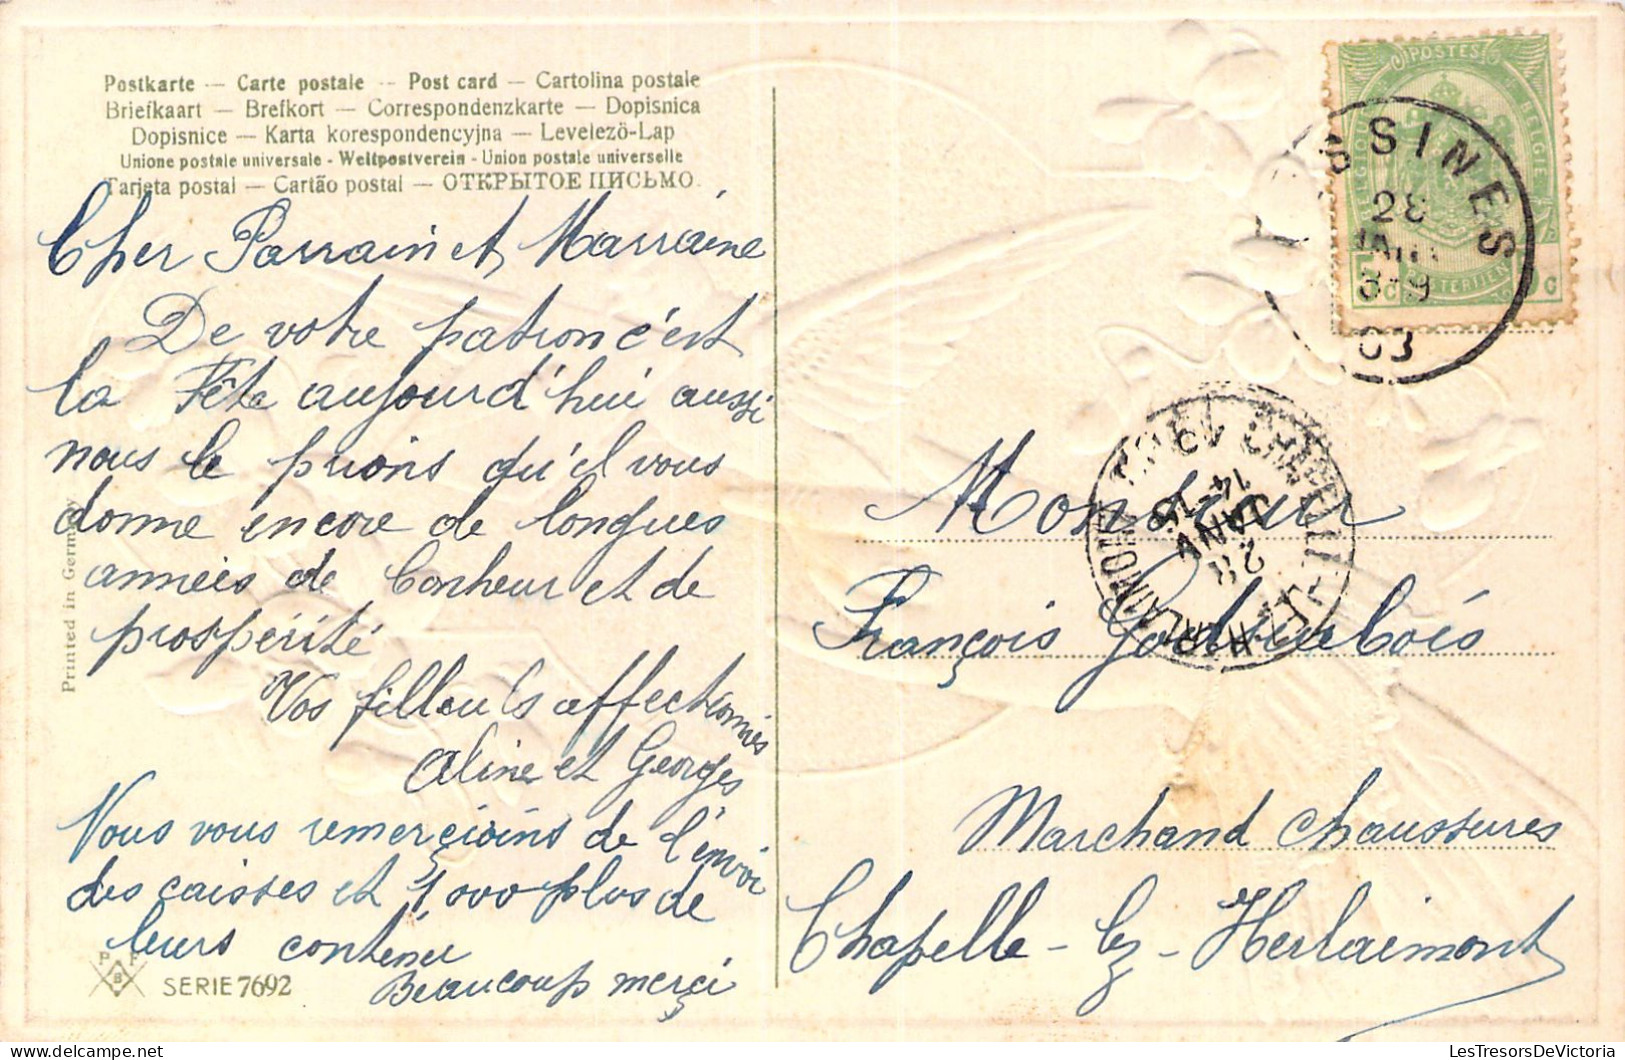 Postkarte — Carte postale — Post card — Cartolina postale
Briefkaart — Brefkort — Correspondenzkarte — Dopisnica
Dopisnice — Karta korespondencyjna — Levelezö-Lap
Unione postale universale - Weltpostverein - Union postale universelle
Tarjeta postal — Cartão postal — ОТКРЫТОЕ ПИСЬМО.
Cher Parrain et Marraine
De votre patron c'est
la Fête aujourd'hui aussi
nous le prions qu'il vous
donne encore de longues
années de bonheur et de
prospérité
Vos filleuls affectionnés
Aline et Georges
Nous vous remerçioins de l'envoi
des caisses et 1000 plus de
leurs contenu
Beaucoup merçi
Printed in Germany
P F
B
SERIE 7692
POSTES
BELGIQUE
BELGIË
POSTERIJEN
SSINES
28
JANV
8-9
03
CHAPELLE-LEZ-HERLAIMONT
14-15
JANV
28
Monsieur
François
Marchand Chaussures
Chapelle-lez-Herlaimont
LesTresorsDeVictoria
delcampe.net